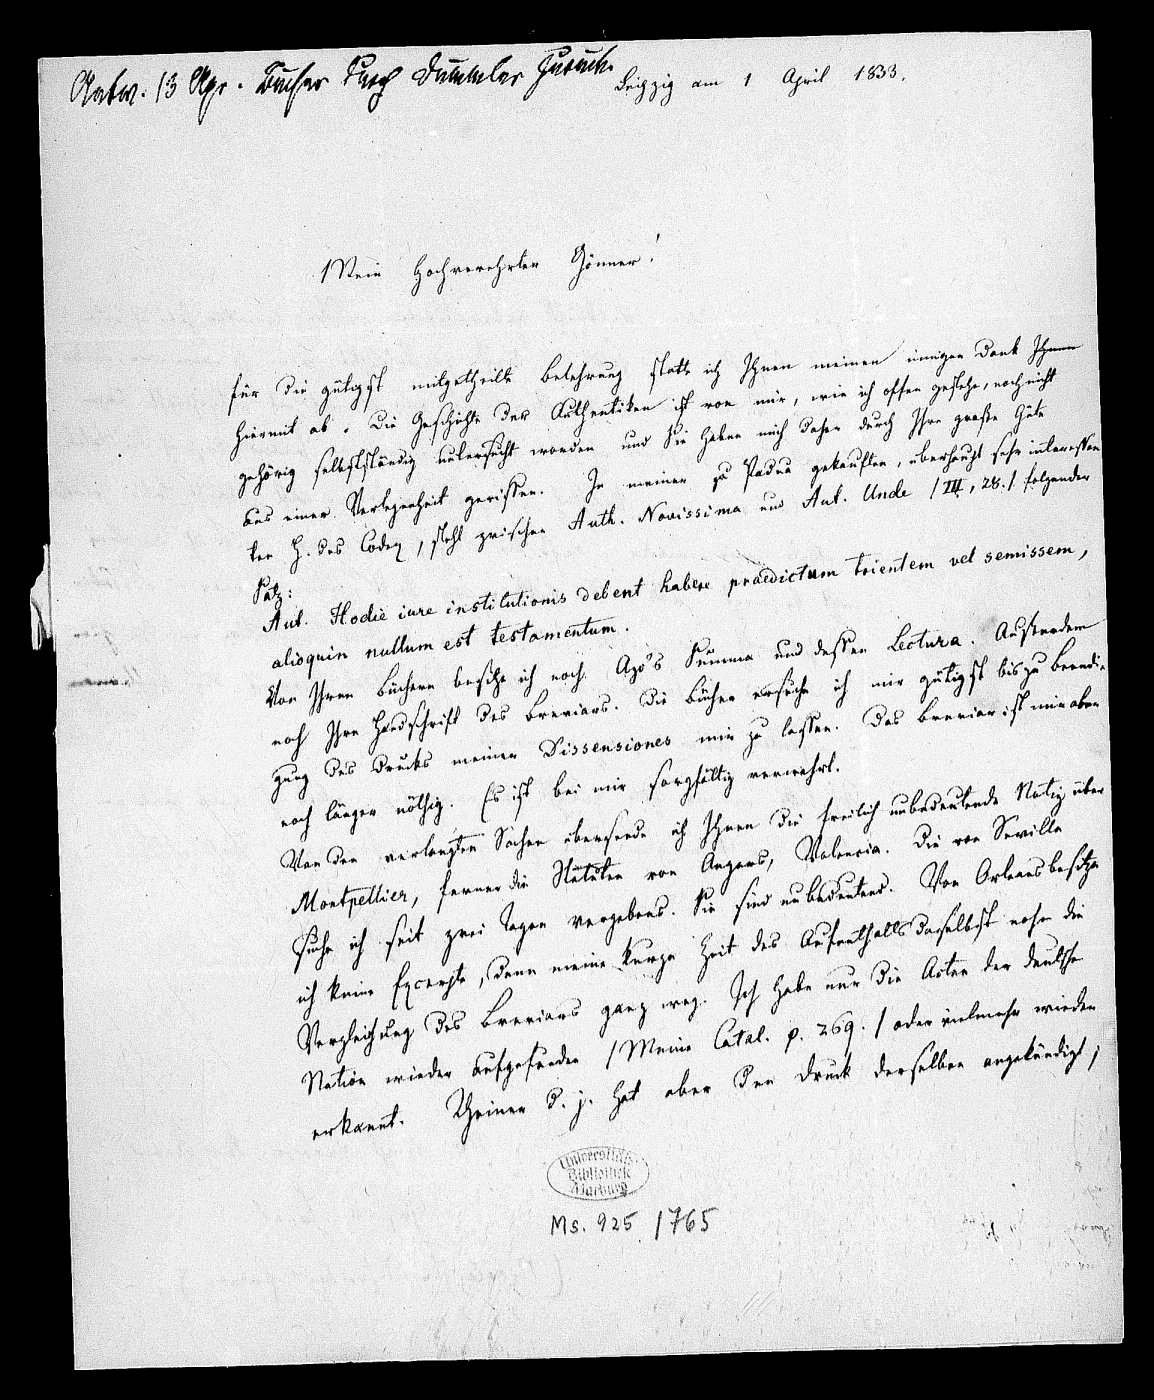 Antw. 13 Apr. Bücher durch Dümmler zurück.
Leipzig am 1 April 1833.
Mein Hochverehrter Gönner!
Für die gütigst mitgetheilte Belehrung statte ich Ihnen meinen innigen Dank Ihnen
hiermit ab. Die Geschichte der Authentiken ist von mir, wie ich offen gestehe, noch nicht
gehörig selbstständig untersucht worden und Sie haben mich daher durch Ihre große Güte
aus einer Verlegenheit gerissen. In meiner zu Padua gekauften, überhaupt sehr interessan
ten H. des Codex, steht zwischen Auth. Novissima und Aut. Unde /III, 28./ folgender
Satz:
Aut. Hodie iure institutionis debent habere praedictum trientem vel semissem,
alioquin nullum est testamentum.
Von Ihren Büchern besitze ich noch Azo's Summa und dessen Lectura. Außerdem
noch Ihre Handschrift des Breviars. Die Bücher ersuche ich mir gütigst bis zu Beendi
gung des Drucks meiner Dissensiones mir zu lassen. Das Breviar ist mir aber
noch länger nöthig. Es ist bei mir sorgfältig verwahrt.
Von den verlangten Sachen übersende ich Ihnen die freilich unbedeutende Notiz über
Montpellier, ferner die Statuten von Angers, Valencia. Die von Sevilla
suche ich seit zwei Tagen vergebens. Sie sind unbedeutend. Von Orleans besitze
ich keine Excerpte, denn meine kurze Zeit des Aufenthalts daselbst nahm die
Vergleichung des Breviars ganz weg. Ich habe nur die Acten der deutsche
Nation wieder aufgefunden /Meine Catal. p. 269./ oder vielmehr wieder
erkannt. Theiner d. j. hat aber den Druck derselben angekündigt;
Universitäts-
Bibliothek
Marburg
Ms. 925 /765